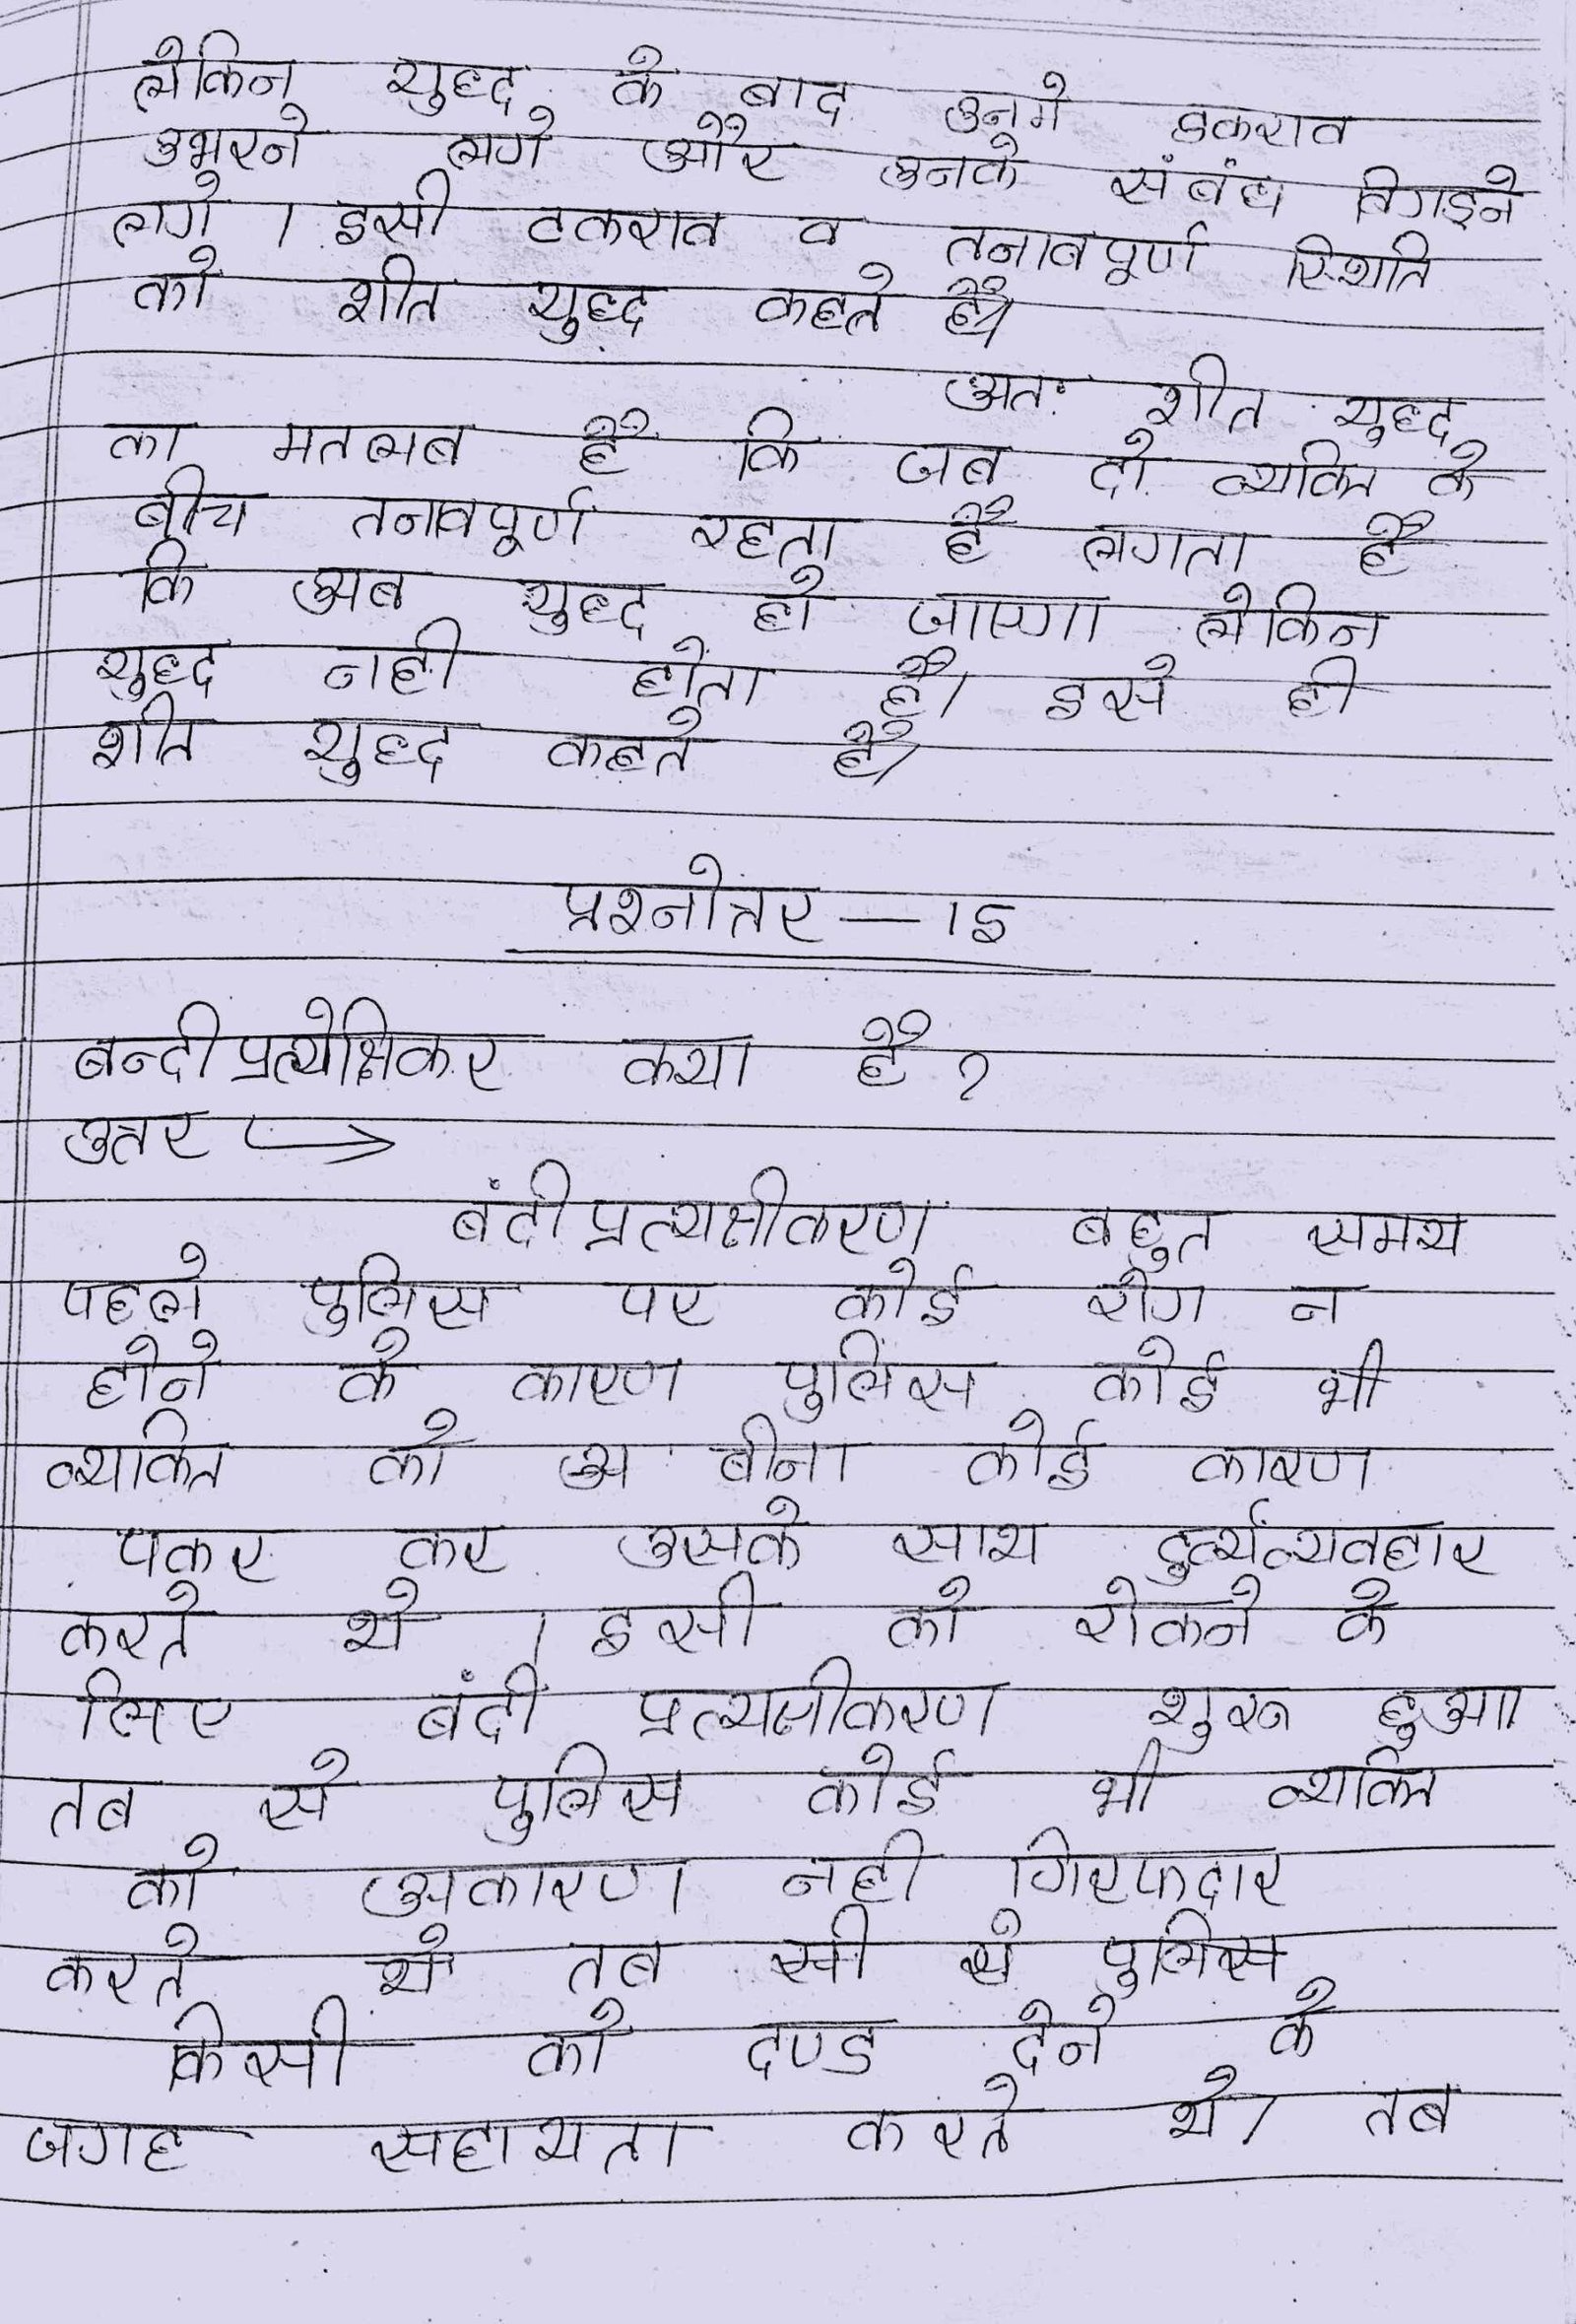 लेकिन युद्ध के बाद उनमे टकराव
उभरने लगे और उनके संबंध विगड़ने
लगे । इसी टकराव व तनावपूर्ण स्थिति
को शीत युद्ध कहते हैं।
अतः शीत युद्ध
का मतलब है कि जब दो व्यक्ति के
बीच तनावपूर्ण रहता है लगता है
कि अब युद्ध हो जाएगा लेकिन
युद्ध नही होता है। इसे ही
शीत युद्ध कहते है।
प्रश्नोत्तर — 15
बन्दी प्रत्येक्षिकर क्या है ?
उत्तर →
बंदी प्रत्यक्षीकरण बहुत समय
पहले पुलिस पर कोई रोग न
होने के कारण पुलिस कोई भी
व्यक्ति को अ बीना कोई कारण
पकर कर उसके साथ दुर्त्यव्यवहार
करते थे । इसी को रोकने के
लिए बंदी प्रत्यक्षीकरण शुरू हुआ
तब से पुलिस कोई भी व्यक्ति
को अकारण नही गिरफदार
करते थे तब सी से पुलिस
किसी को दण्ड देने के
जगह सहायता करते थे। तब